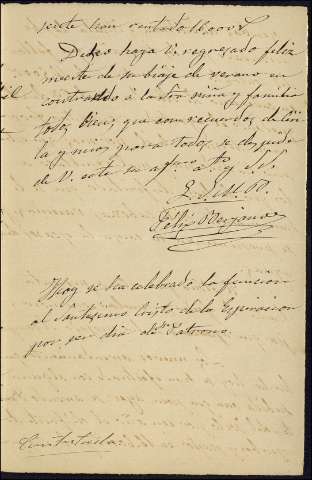 gente han contado 16.000 $
Deseo haya V. regresado feliz
mente de su biaje de verano en
contrando á la Sra niña y familia
todos bien; que con recuerdos de
la y mios para todos, se despide
de V. este su afmo. a. y S. S.
Q. S. M. B.
Felix Bejarano
Hoy se ha celebrado la funcion
al Santisimo Cristo de la Espiracion
por ser dia del Patrono.
Contestada